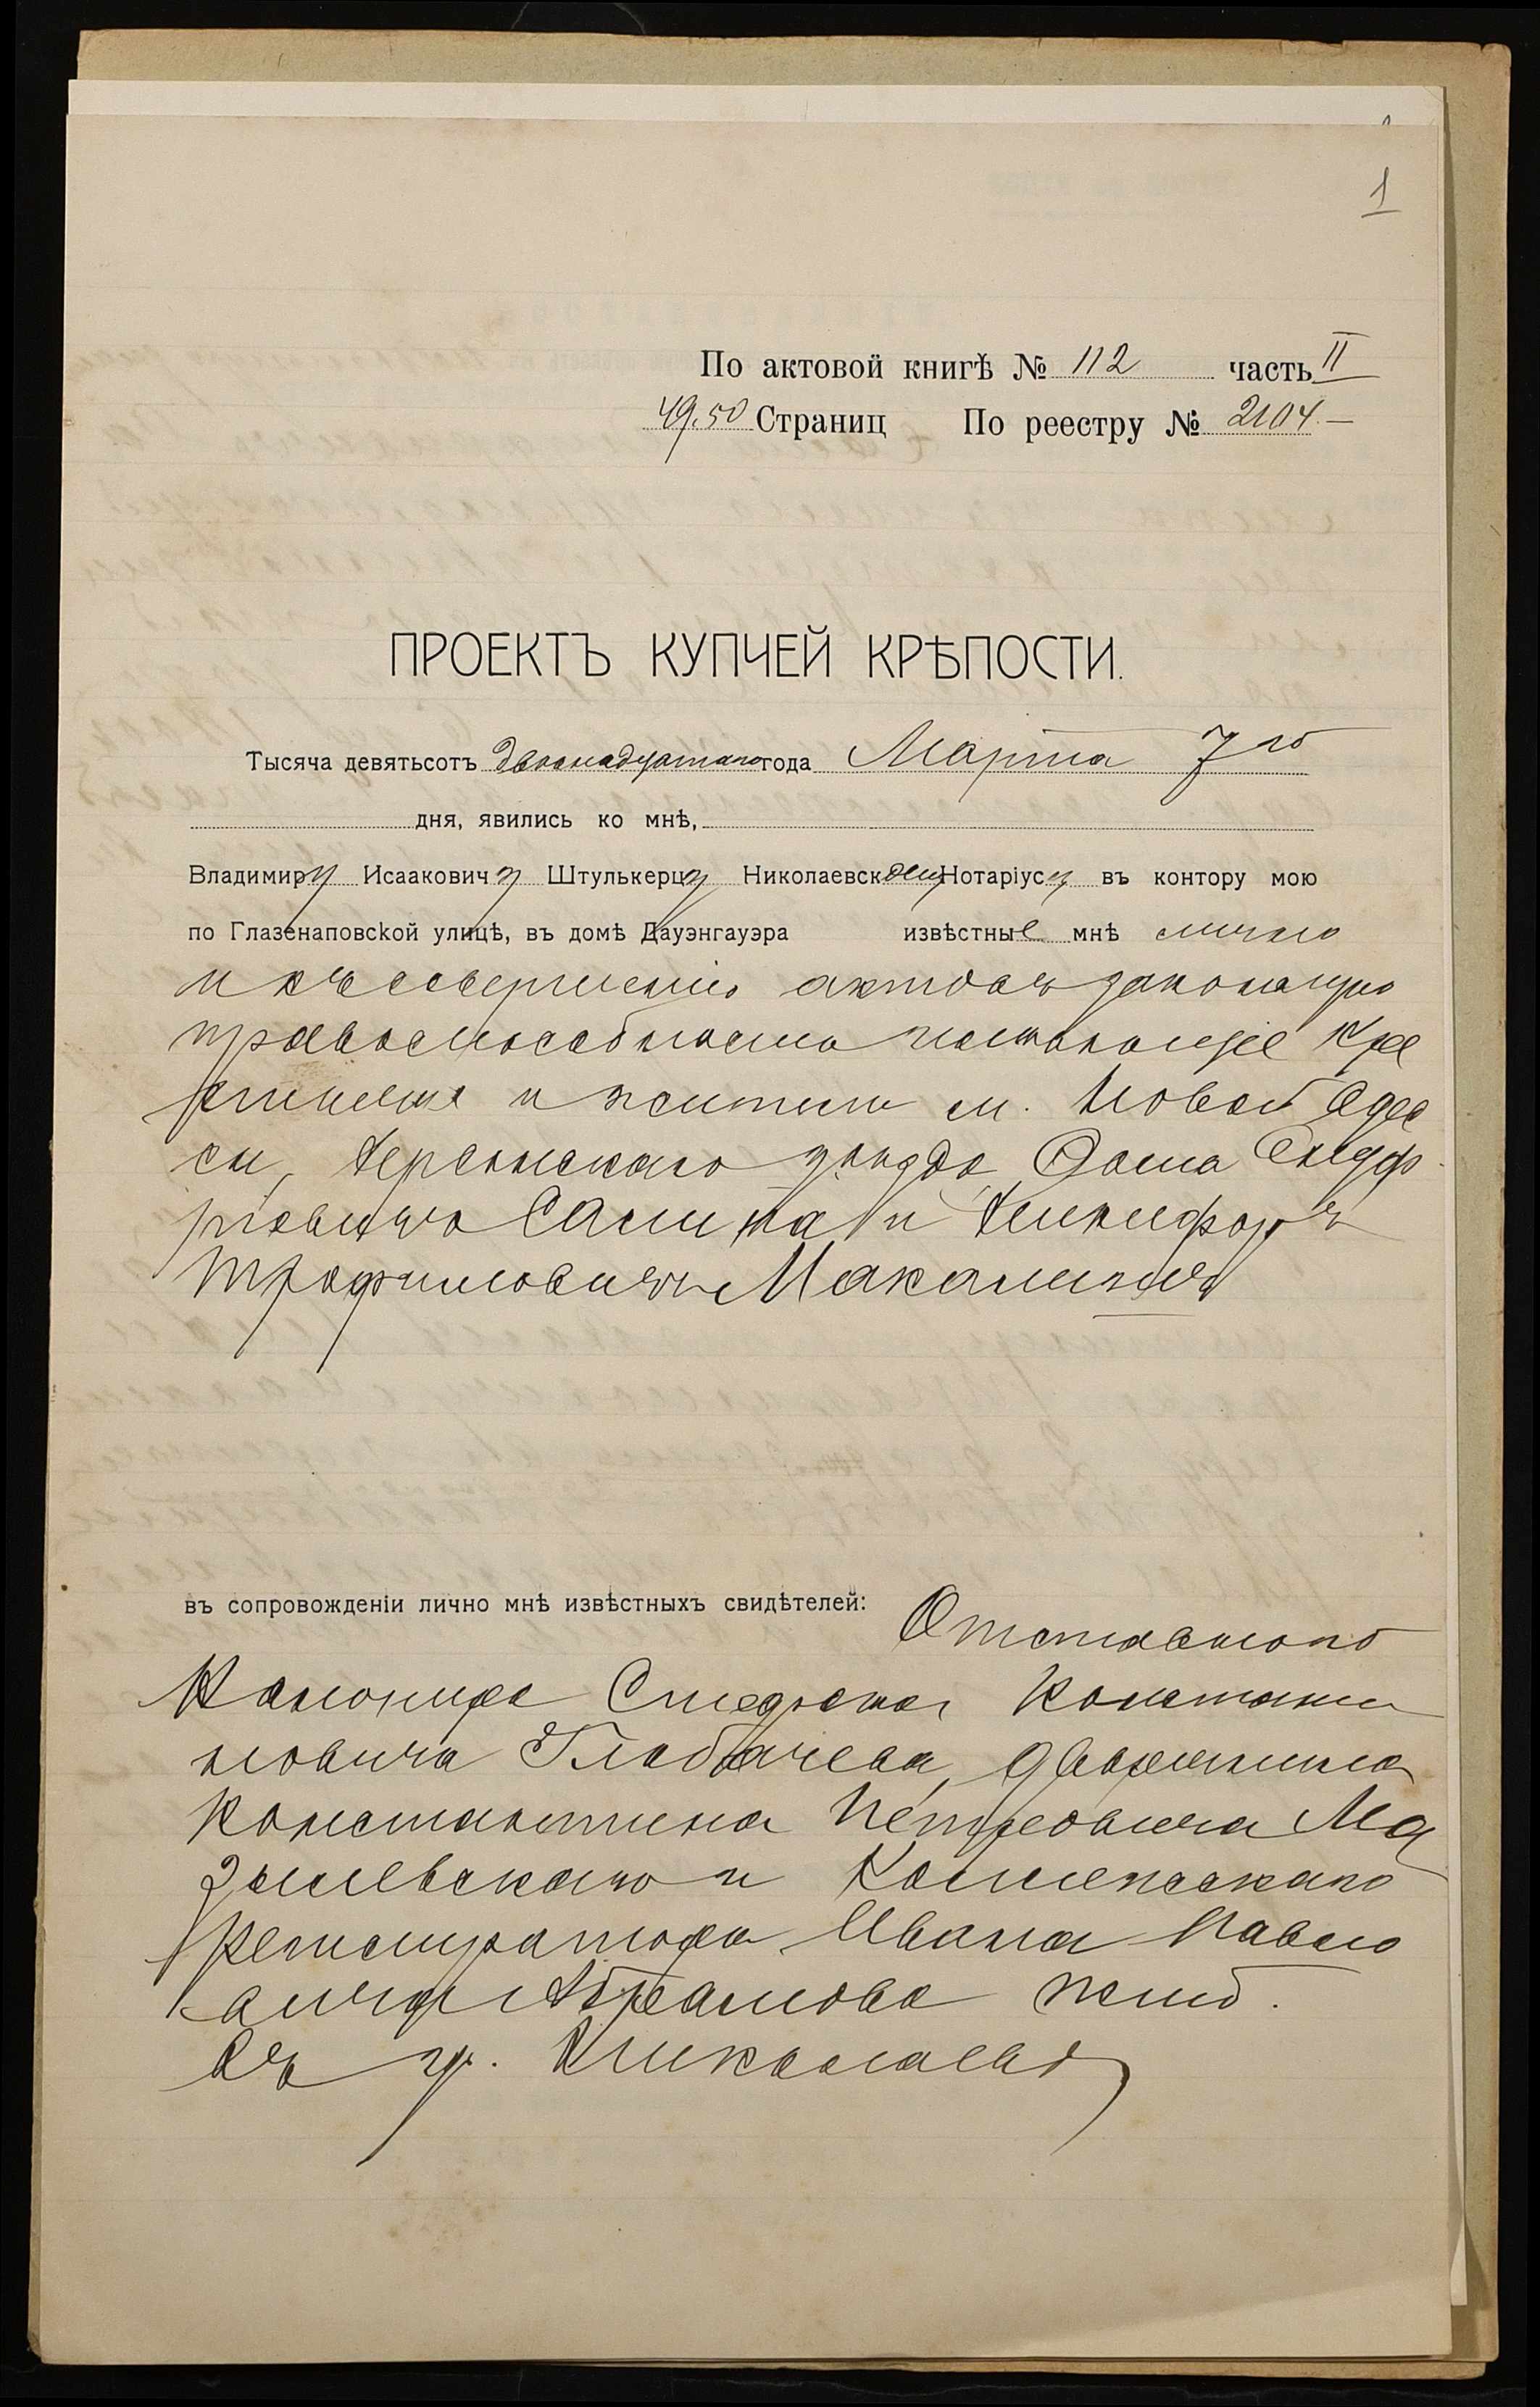 1
По актовой книгѣ № 112 часть II
49.50 Страниц По реестру № 2104.—
ПРОЕКТЪ КУПЧЕЙ КРѢПОСТИ.
Тысяча девятьсотъ двенадцатаго года Марта 7го
дня, явились ко мнѣ,
Владимиру Исааковичу Штулькерцу Николаевскому Нотаріусу въ контору мою
по Глазенаповской улицѣ, въ домѣ Дауэнгауэра извѣстные мнѣ лично
и къ совершенію актовъ законную
правоспособность имеющіе кре
стьяне и жители м. Новой Одес
сы, Херсонскаго уѣзда, Фома
и Никифоръ
Трофимовичъ
въ сопровожденіи лично мнѣ извѣстныхъ свидѣтелей: Отставного
Канонира Константи
новича дворянина
Константина Петровича Ма
и Коллежскаго
Регистратора Ивана Павло
вича Абрамова жив.
въ гр. Николаевѣ